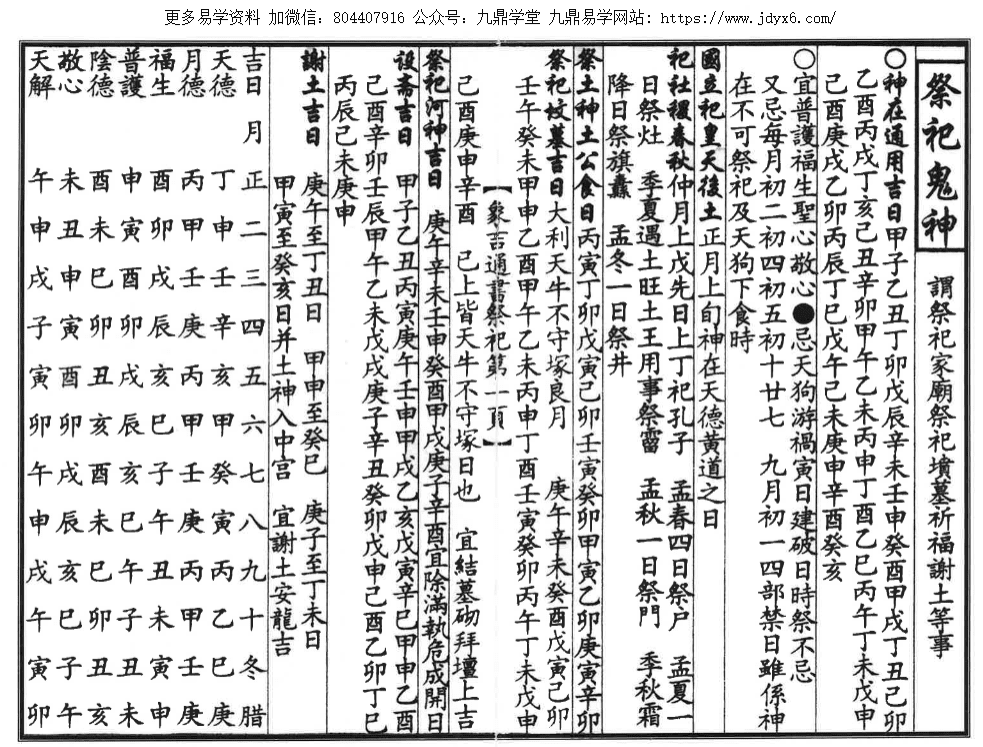 更多易学资料 加微信：804407916 公众号：九鼎学堂 九鼎易学网站：https://www.jdyx6.com/
祭祀鬼神
謂祭祀家廟祭祀墳墓祈福謝土等事
○神在通用吉日甲子乙丑丁卯戊辰辛未壬申癸酉甲戌丁丑己卯
乙酉丙戌丁亥己丑辛卯甲午乙未丙申丁酉乙巳丙午丁未戊申
己酉庚戌乙卯丙辰丁巳戊午己未庚申辛酉癸亥
○宜普護福生聖心敬心●忌天狗游禍寅日建破日時祭不忌
又忌每月初二初四初五初十廿七 九月初一四部禁日雖係神
在不可祭祀及天狗下食時
國立祀皇天後土正月上旬神在天德黄道之日
祀社稷春秋仲月上戊先日上丁祀孔子 孟春四日祭户 孟夏一
日祭灶 季夏遇土旺土王用事祭霤 孟秋一日祭門 季秋霜
降日祭旗纛 孟冬一日祭井
祭土神土公食日丙寅丁卯戊寅己卯壬寅癸卯甲寅乙卯庚寅辛卯
祭祀墳墓吉日大利天牛不守塚良月 庚午辛未癸酉戊寅己卯
壬午癸未甲申乙酉甲午乙未丙申丁酉壬寅癸卯丙午丁未戊申
【象吉通書祭祀第一頁】
己酉庚申辛酉 已上皆天牛不守塚日也 宜結墓砌拜壇上吉
祭祀河神吉日 庚午辛未壬申癸酉甲戌庚子辛酉宜除滿執危成開日
设斋吉日 甲子乙丑丙寅庚午壬申甲戌乙亥戊寅辛巳甲申乙酉
己酉辛卯壬辰甲午乙未戊戌庚子辛丑癸卯戊申己酉乙卯丁巳
丙辰己未庚申
謝土吉日 庚午至丁丑日 甲申至癸巳 庚子至丁未日
甲寅至癸亥日并土神入中宫 宜謝土安龍吉
吉日 月 正 二 三 四 五 六 七 八 九 十 冬 腊
天德 丁 申 壬 辛 亥 甲 癸 寅 丙 乙 巳 庚
月德 丙 甲 壬 庚 丙 甲 壬 庚 丙 甲 壬 庚
福生 酉 卯 戌 辰 亥 巳 子 午 丑 未 寅 申
普護 申 寅 酉 卯 戌 辰 亥 巳 午 子 丑 未
陰德 酉 未 巳 卯 丑 亥 酉 未 巳 卯 丑 亥
敬心 未 丑 申 寅 酉 卯 戌 辰 亥 巳 子 午
天解 午 申 戌 子 寅 卯 午 申 戌 午 寅 卯